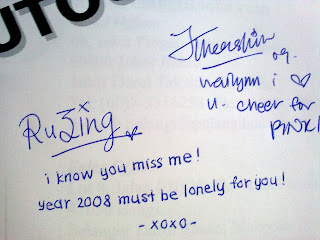 UTO
09.
i ♡
u. cheer for
PINK!
RuZing
i know you miss me!
year 2008 must be lonely for you!
- xoxo -